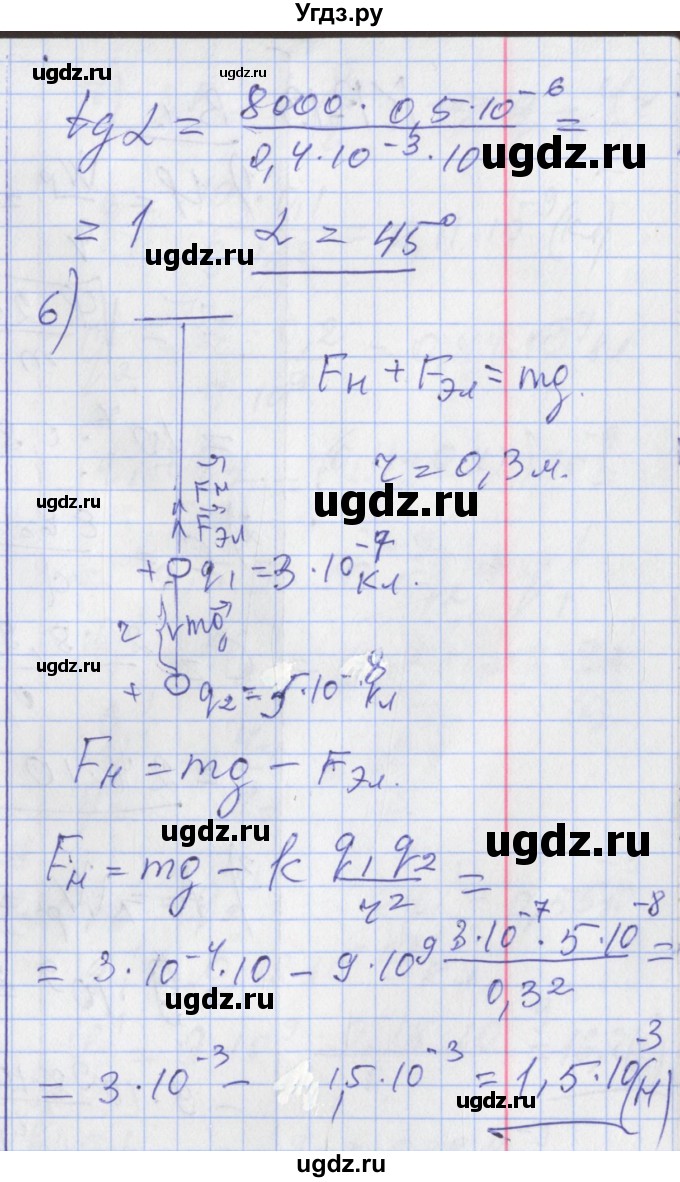 Угдз.ру
ugdz.ru ugdz.ru
tg α = 8000 · 0,5 · 10⁻⁶ / 0,4 · 10⁻³ · 10 =
ugdz.ru
= 1 α = 45°
ugdz.ru
6)
Fн + Fэл = mg
r = 0,3 м.
ugdz.ru ugdz.ru
Fэл
+ q₁ = 3 · 10⁻⁷ Кл.
r mg
ugdz.ru
+ q₂ = 5 · 10⁻⁸ Кл
Fн = mg − Fэл.
ugdz.ru ugdz.ru
Fн = mg − k q₁ q₂ / r² =
= 3 · 10⁻⁴ · 10 − 9 · 10⁹ 3 · 10⁻⁷ · 5 · 10⁻⁸ / 0,3² =
ugdz.ru
= 3 · 10⁻³ − 1,5 · 10⁻³ = 1,5 · 10⁻³ (Н)
ugdz.ru
ugdz.ru